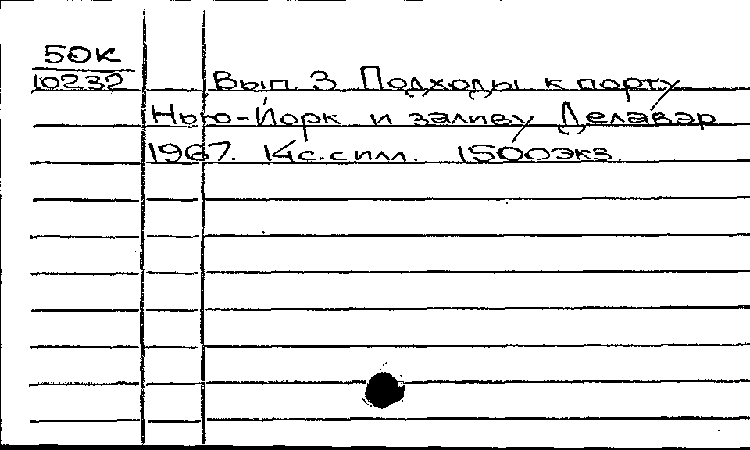 50К
10232 Вып. 3 Подходы к порту
Нью-Йорк и заливу Делавэр
1967. 14с.с илл. 1500экз.